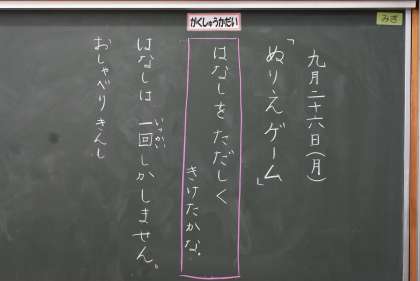 がくしゅうかだい
みぎ
九月二十六日(月)
「ぬりえゲーム」
はなしを ただしく
きけたかな。
はなしは 一回しかしません。
いっかい
おしゃべりきんし